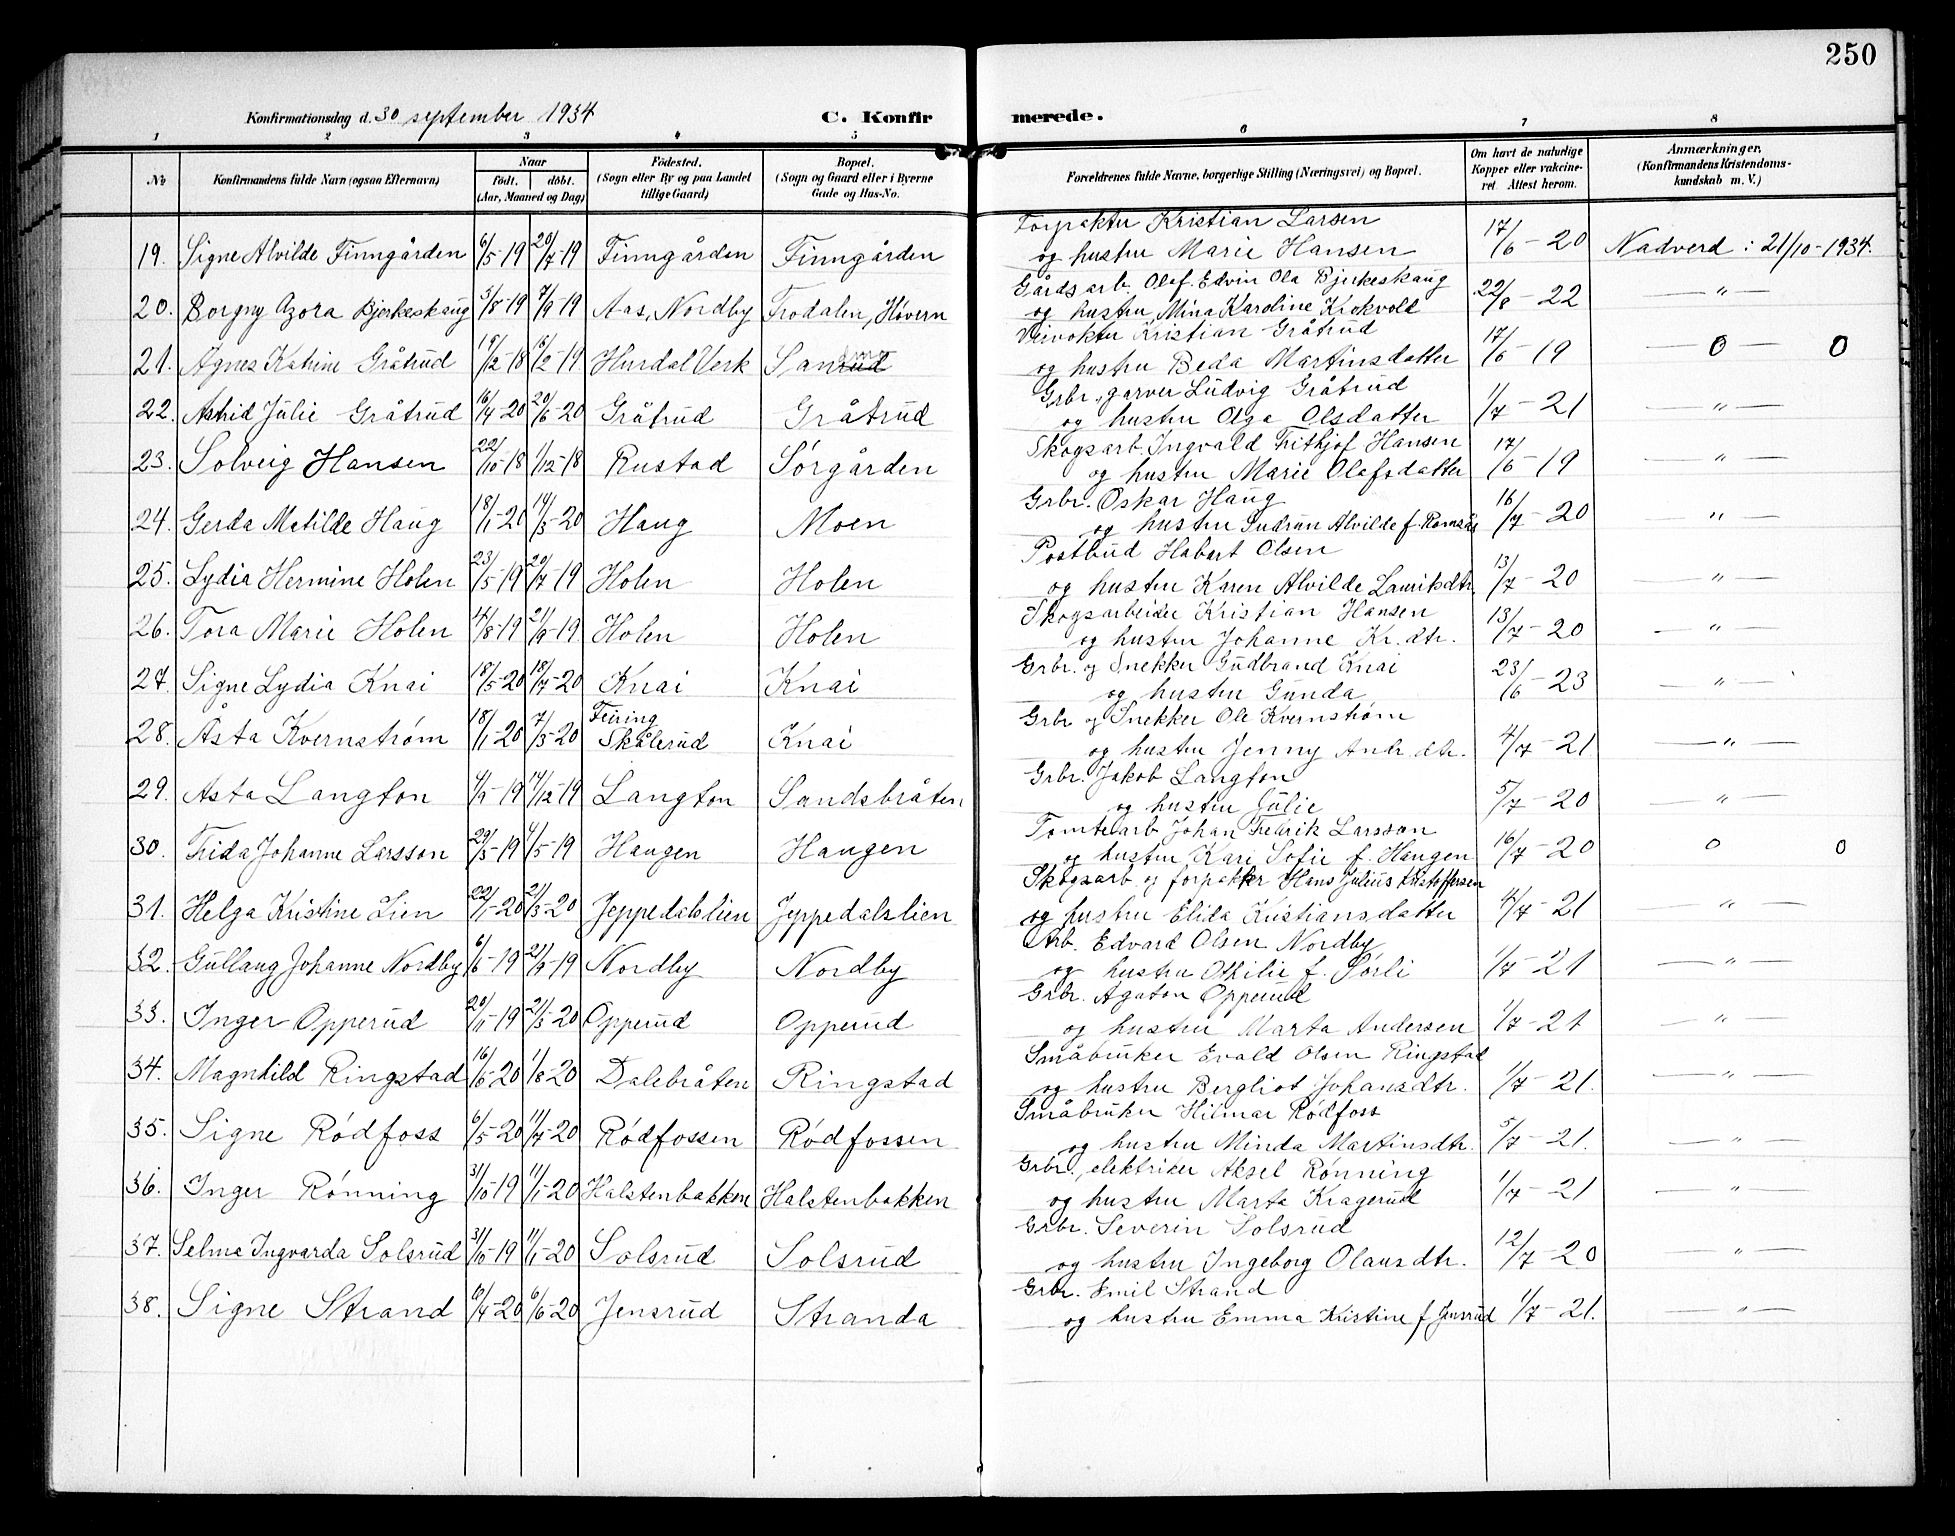 250
Konfirmationsdag d. 30 september 1934
C. Konfirmerede.
1 2 3 4 5 6 7 8
No
Konfirmandens fulde Navn (ogsaa Efternavn)
Naar
født. døbt.
(Aar, Maaned og Dag)
Fødested.
(Sogn eller By og paa Landet
tillige Gaard)
Bopæl.
(Sogn og Gaard eller i Byerne
Gade og Hus-No.
Forældrenes fulde Navne, borgerlige Stilling (Næringsvei) og Bopæl.
Om havt de naturlige
Kopper eller vakcine-
ret. Attest herom.
Anmærkninger.
(Konfirmandens Kristendoms-
kundskab m. V.)
Forpakter Kristian Larsen
19. Signe Alvilde Finngården 6/5-19 20/7-19 Finngården Finngården og hustru Marie Hansen 17/6-20 Nadverd: 21/10-1934.
Gårdsarb. Olaf Edvin Ola Bjerkeskaug
20. Borgny Azora Bjerkeskaug 3/8-19 7/9-19 Aas, Nordby Frodalen, Hovern og hustru Mina Karoline Krokvold 22/8-22 — " —
Veivokter Kristian Gråtrud
21. Agnes Katrine Gråtrud 19/12-18 6/2-19 Hurdal Verk og hustru Beda Martinsdatter 17/6-19 — 0 — 0
Grbr., garver Ludvig Gråtrud
22. Astrid Julie Gråtrud 16/4-20 20/6-20 Gråtrud Gråtrud og hustru Olga Olsdatter 1/7-21 — " —
Skogsarb. Ingvald Fritjof Hansen
23. Solveig Hansen 22/10-18 1/12-18 Rustad Sørgården og hustru Marie Olafsdatter 17/6-19 — " —
Grbr. Oskar Haug
24. Gerda Matilde Haug 18/1-20 14/3-20 Haug Moen og hustru Gudrun Alvilde f. Ramsås 16/7-20 — " —
Postbud Habart Olsen
25. Lydia Hermine Holen 23/5-19 20/7-19 Holen Holen og hustru Karen Alvilde Lauritsdtr. 13/7-20 — " —
Skogsarbeider Kristian Hansen
26. Tora Marie Holen 14/8-19 21/9-19 Holen Holen og hustru Johanne Kr.dtr. 13/7-20 — " —
Grbr. og Snekker Gudbrand Knai
27. Signe Lydia Knai 18/5-20 18/7-20 Knai Knai og hustru Gunda 23/6-23 — " —
Grbr og Snekker Ole Kvernstrøm
28. Åsta Kvernstrøm 18/1-20 7/3-20 Feiring Skålerud Knai og hustru Jenny Andr.dtr. 4/7-21 — " —
Grbr. Jakob Langton
29. Asta Langton 14/12-19 Langton Sandsbråten og hustru Julie 5/7-20 — " —
Tomtearb Johan Fredrik Larsson
30. Frida Johanne Larsson 29/3-19 4/5-19 Haugen Haugen og hustru Kari Sofie f. Haugen 16/7-20 0 0
Skogsarb. og forpakter Hans Julius Kristoffersen
31. Helga Kristine Lien 22/1-20 21/3-20 Jeppedalslien Jeppedalslien og hustru Elida Kristiansdatter 4/7-21 — " —
Arb. Edvard Olsen Nordby
32. Gullaug Johanne Nordby 6/6-19 21/9-19 Nordby Nordby og hustru Othilie f. Sørli 1/7-21 — " —
Grbr. Agaton Opperud
33. Inger Opperud 20/11-19 21/3-20 Opperud Opperud og hustru Marta Andersen 1/7-21 — " —
Småbruker Evald Olsen Ringstad
34. Magnhild Ringstad 16/6-20 1/8-20 Dalebråten Ringstad og hustru Bergliot Johansdtr. 1/7-21. — " —
Småbruker Hilmar Rødfoss
35. Signe Rødfoss 6/5-20 11/7-20 Rødfossen Rødfossen og hustru Minda Martinsdtr. 5/7-21. — " —
Grbr., elektriker Aksel Rønning
36. Inger Rønning 31/10-19 11/1-20 Halstenbakken Halstenbakken og hustru Marta Kragerud 1/7-21 — " —
Grbr. Severin Solsrud
37. Selma Ingvarda Solsrud 31/10-19 11/1-20 Solsrud Solsrud og hustru Ingeborg Olausdtr. 12/7-20 — " —
Grbr. Emil Strand
38. Signe Strand 6/4-20 6/6-20 Jensrud Stranda og hustru Emma Kristine f Jensrud 1/7-21. — " —